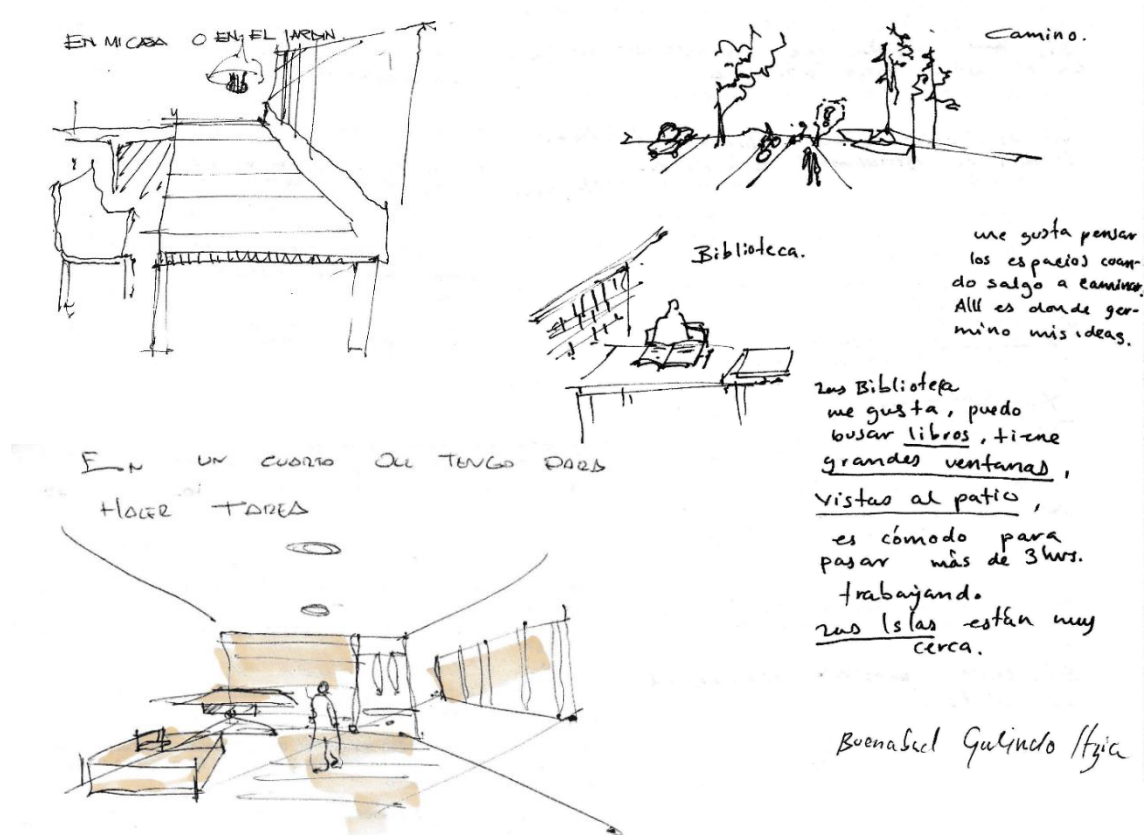 EN MI CASA O EN EL JARDIN.
Camino.
Biblioteca.
me gusta pensar
los espacios cuan-
do salgo a caminar.
Allí es donde ger-
mino mis ideas.
Biblioteca
me gusta, puedo
buscar libros, tiene
grandes ventanas,
vistas al patio,
es cómodo para
pasar más de 3 hrs.
trabajando.
Las Islas están muy
cerca.
EN UN CUARTO QUE TENGO PARA
HACER TAREA
Galindo Itzia